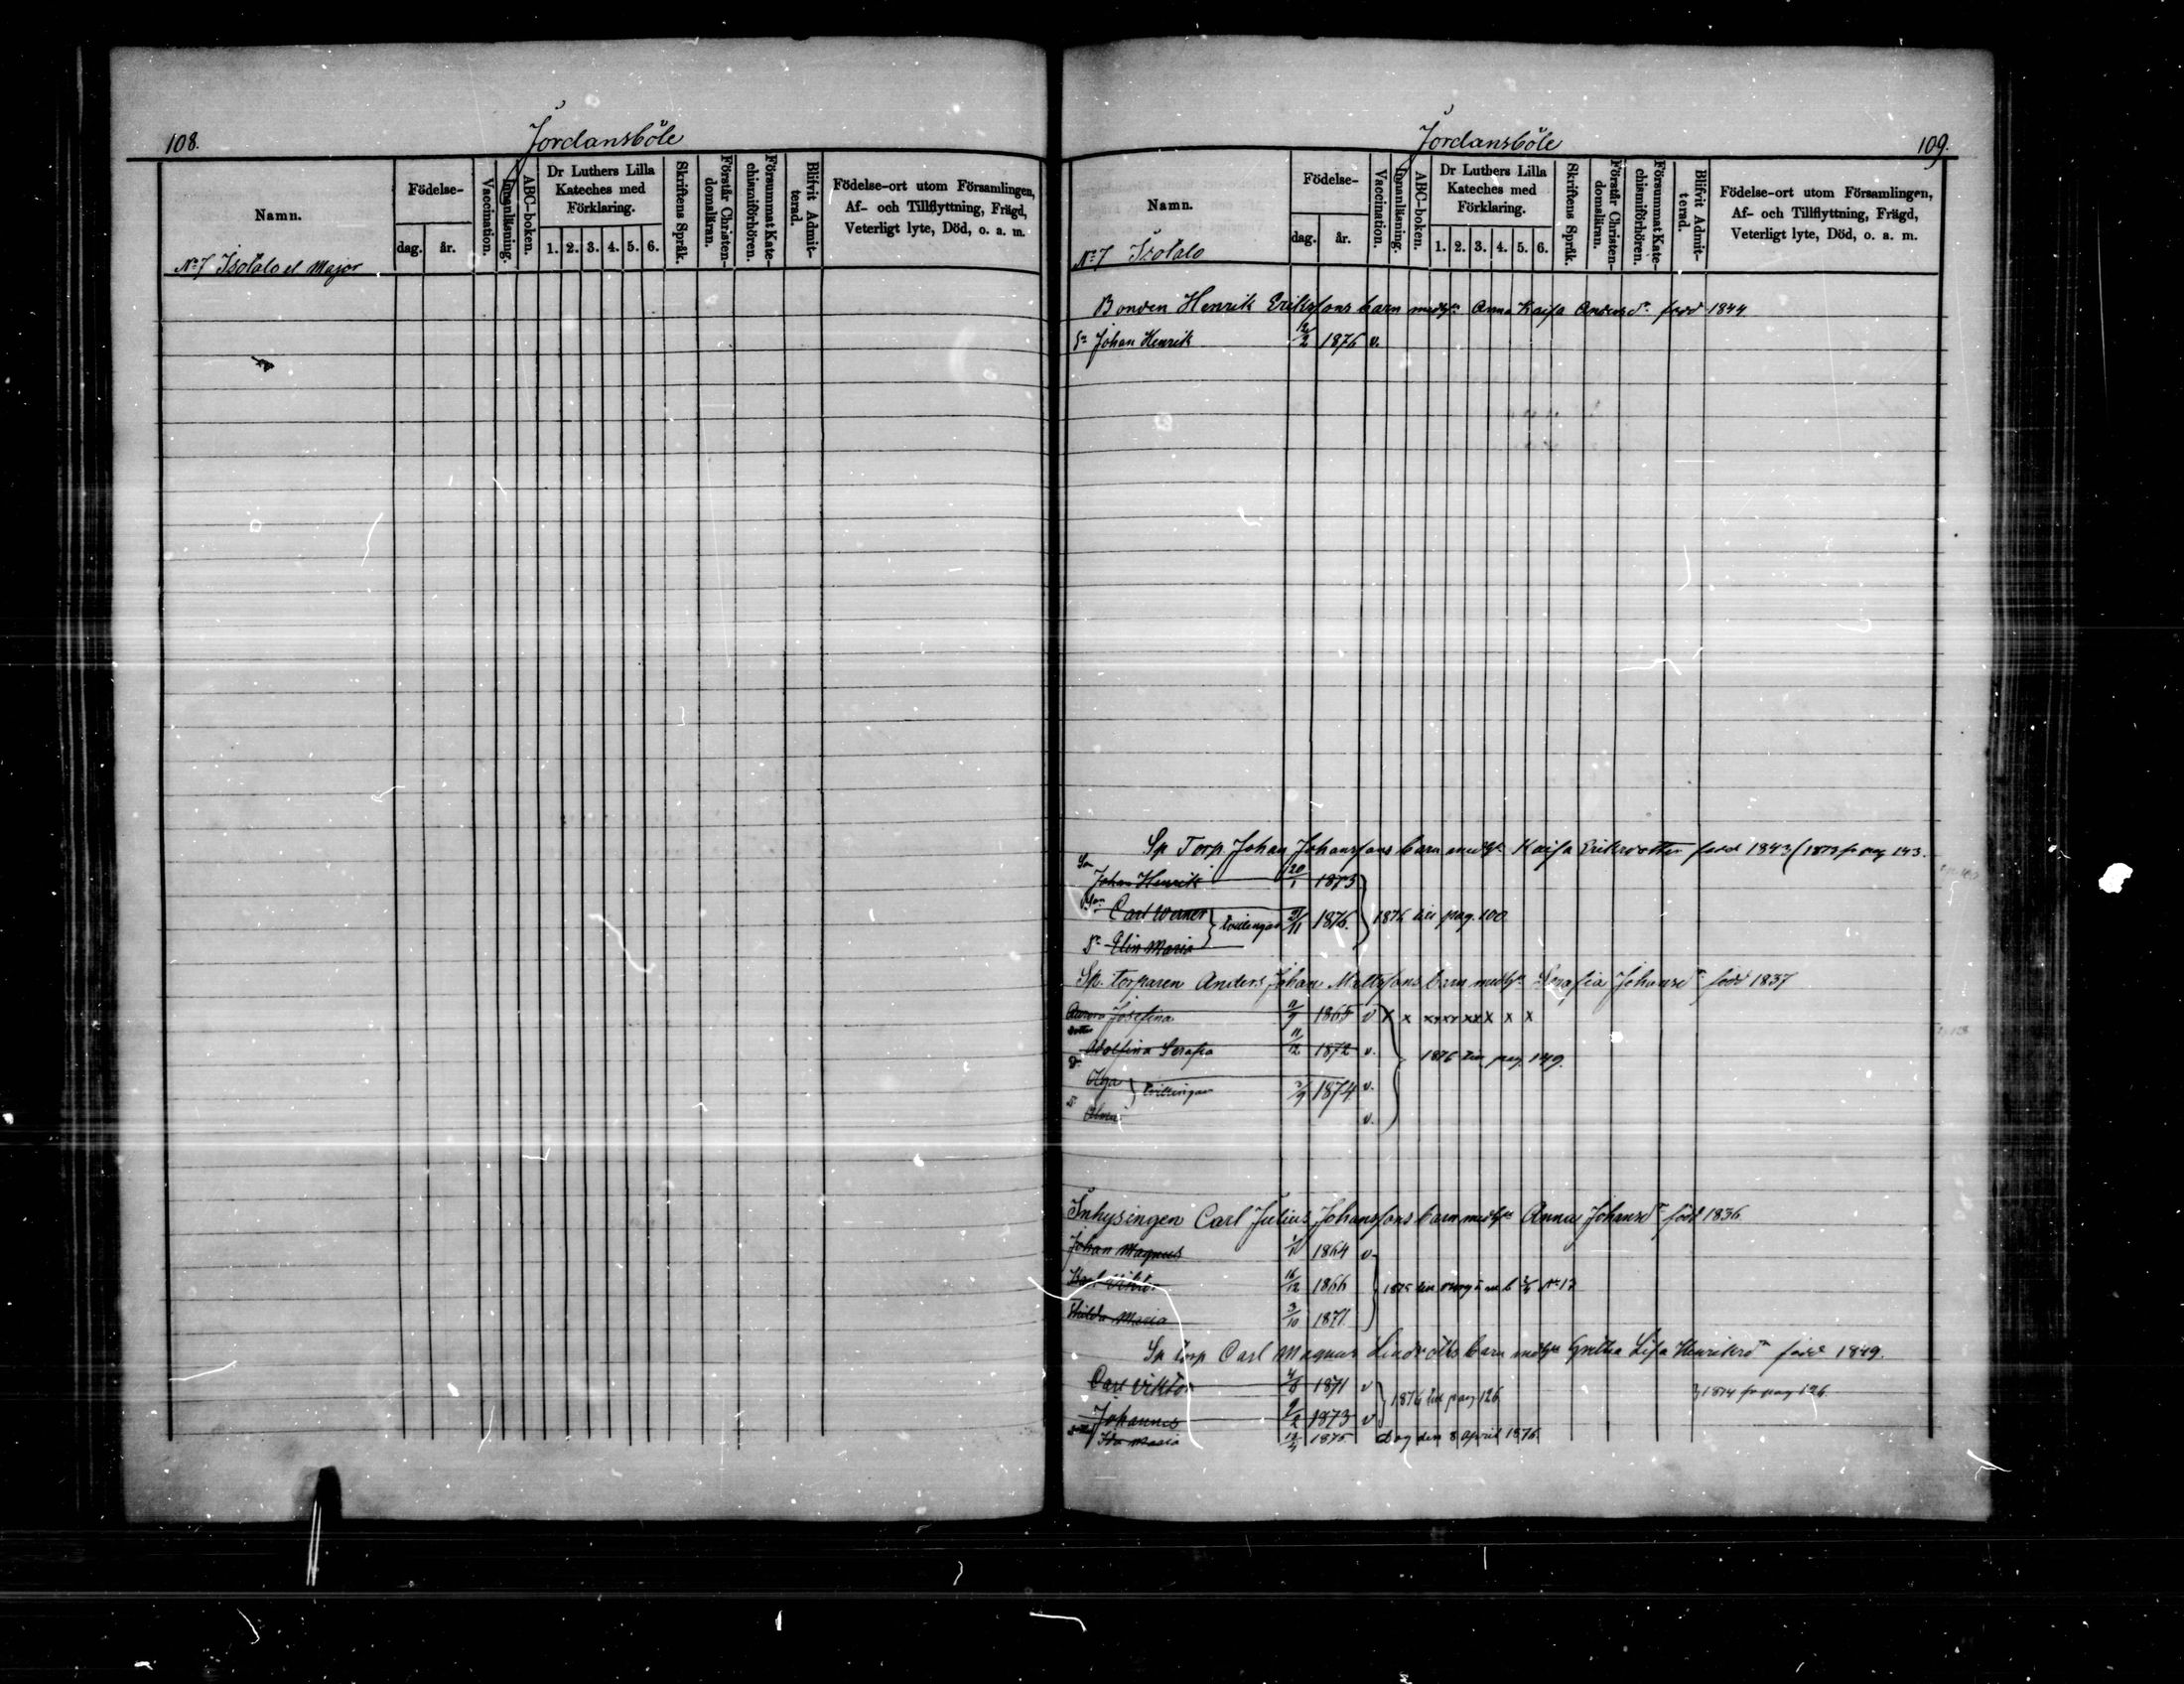 108.
Jordansböle
Namn.
Födelse-
dag.
år.
Vaccination.
Innanläsning.
ABC-boken.
Dr Luthers Lilla
Kateches med
Förklaring.
1. 2. 3. 4. 5. 6.
Skriftens Språk.
Förstår Christen-
domsläran.
Försummat Kate-
chismiförhören.
Blifvit Admit-
terad.
Födelse-ort utom Församlingen,
Af- och Tillflyttning, Frägd,
Veterligt lyte, Död, o. a. m.
No 7 Isotalo el Major
Jordansböle
109.
Namn.
Födelse-
dag.
år.
Vaccination.
Innanläsning.
ABC-boken.
Dr Luthers Lilla
Kateches med
Förklaring.
1. 2. 3. 4. 5. 6.
Skriftens Språk.
Förstår Christen-
domsläran.
Försummat Kate-
chismiförhören.
Blifvit Admit-
terad.
Födelse-ort utom Församlingen,
Af- och Tillflyttning, Frägd,
Veterligt lyte, Död, o. a. m.
No 7 Isotalo
Bonden Henrik Eriksons barn med Anna Kajsa Andersd. född 1844
Johan Henrik 1876 v.
Sp Torp Johan Johanssons barn med Kajsa Eriksdotter född 1843 (1873 fr pag 143.
Son Johan Henrik 20/1 1873
Son Carl Werner } tvillingar 1876 } 1876 till pag. 100
Dr Elin Maria
Sp. torparen Anders Johan Mattssons barn med Serafia Johansdr född 1837
Aurora Josefina 1865 v x x xxxx xx x x x
Dotter Adolfina Serafia 11/12 1872 v. } 1876 till pag. 149.
Dr Olga } tvillingar 1874 v.
Dr Alma v.
Inhysingen Carl Julius Johanssons barn med Anna Johansdr född 1836
Johan Magnus 1864 v
Karl Viktor 16/12 1866 } 1875 till No 17
Hilda Maria 3/10 1871
Sp torp Carl Magnus barn med Gretha Lisa Henriksdr född 1849.
Carl Viktor 1871 v } 1876 till pag 126 } 1874 fr pag 126
Johannes 1873 v
Ida Maria 1875 Dog den 8 April 1876